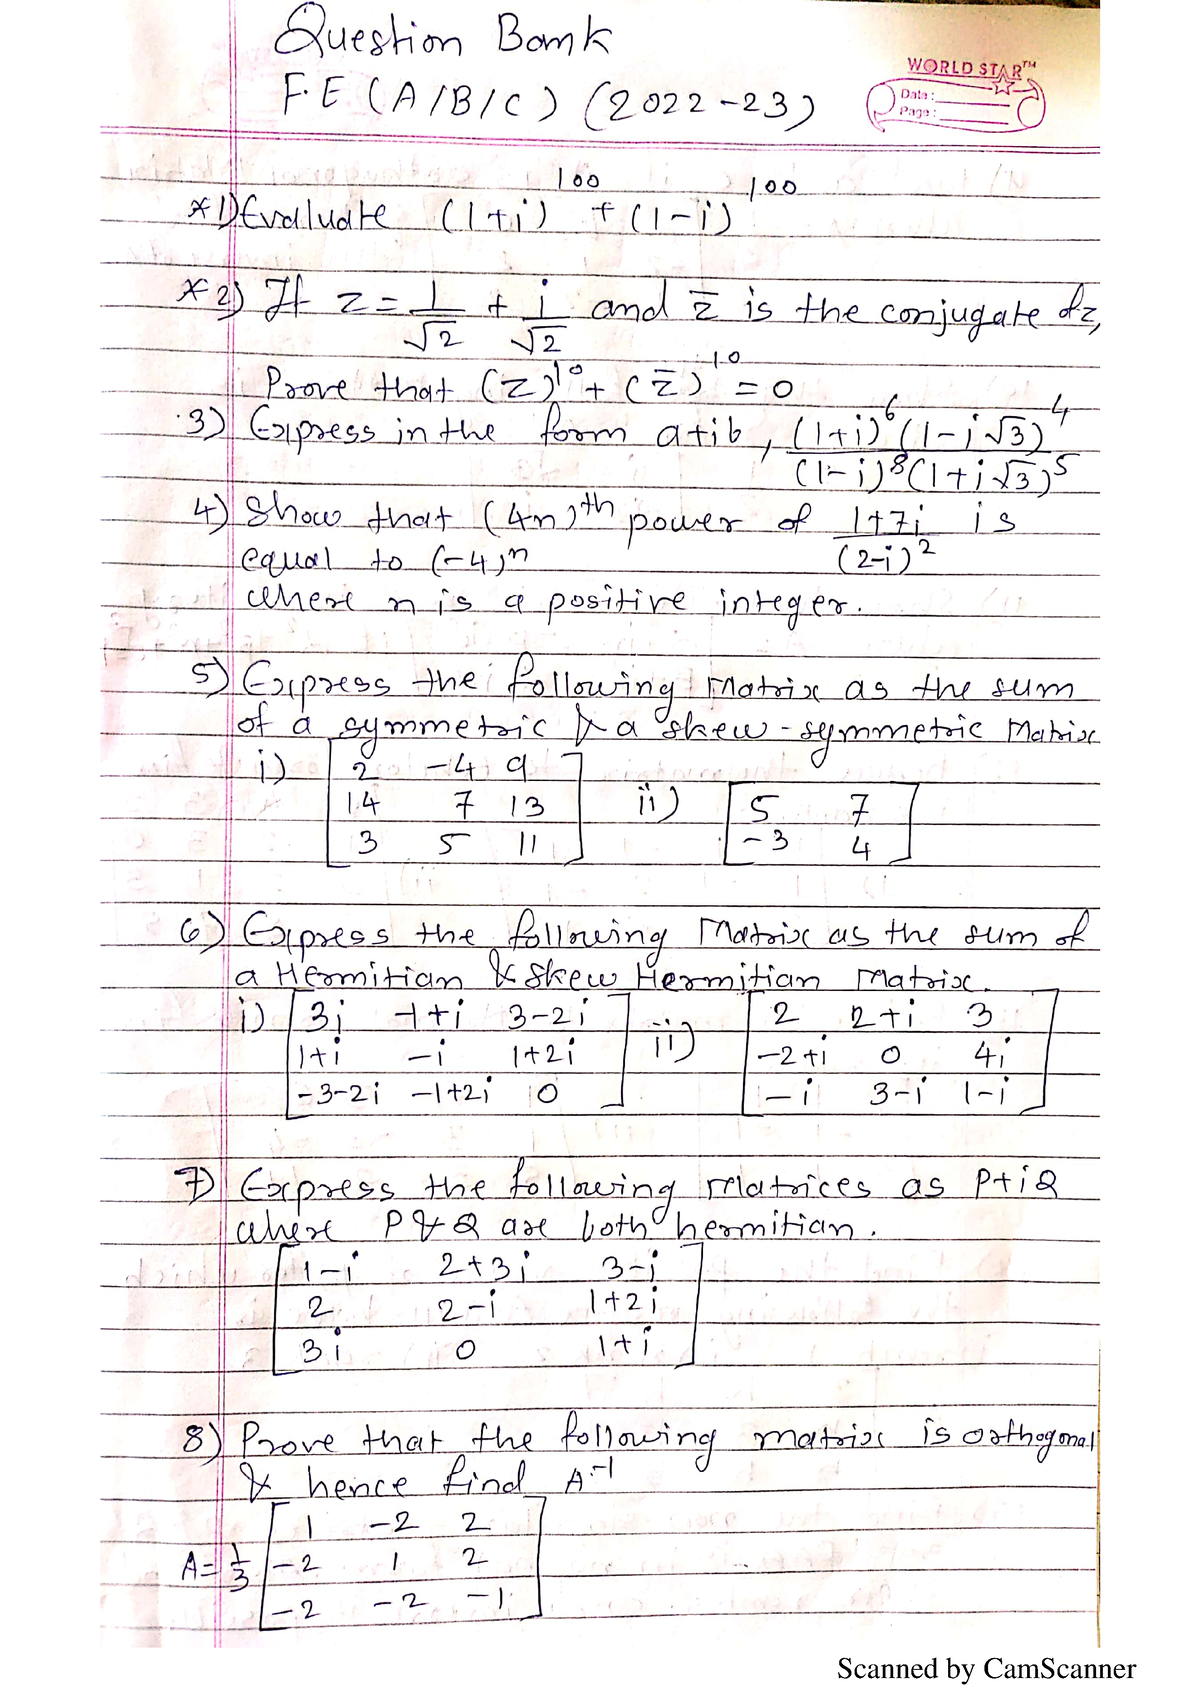 Question Bank
WORLD STAR™
F.E (A/B/C) (2022-23)
Date:
Page:
*1) Evaluate (1+i)^100 + (1-i)^100
*2) If z = 1/√2 + i/√2 and z̅ is the conjugate of z,
Prove that (z)^10 + (z̅)^10 = 0
3) Express in the form a+ib, (1+i)^6 (1-i√3)^4 / (1-i)^8 (1+i√3)^5
4) Show that (4n)th power of 1+7i / (2-i)^2 is
equal to (-4)^n
where n is a positive integer.
5) Express the following Matrix as the sum
of a symmetric & a skew-symmetric Matrix
i) [ 2 -4 9
14 7 13
3 5 11 ]
ii) [ 5 7
-3 4 ]
6) Express the following Matrix as the sum of
a Hermitian & Skew Hermitian Matrix.
i) [ 3i -1+i 3-2i
1+i -i 1+2i
-3-2i -1+2i 0 ]
ii) [ 2 2+i 3
-2+i 0 4i
-i 3-i 1-i ]
7) Express the following Matrices as P+iQ
where P & Q are both hermitian.
[ 1-i 2+3i 3-i
2 2-i 1+2i
3i 0 1+i ]
8) Prove that the following matrix is orthogonal
& hence find A^-1
A = 1/3 [ 1 -2 2
-2 1 2
-2 -2 -1 ]
Scanned by CamScanner